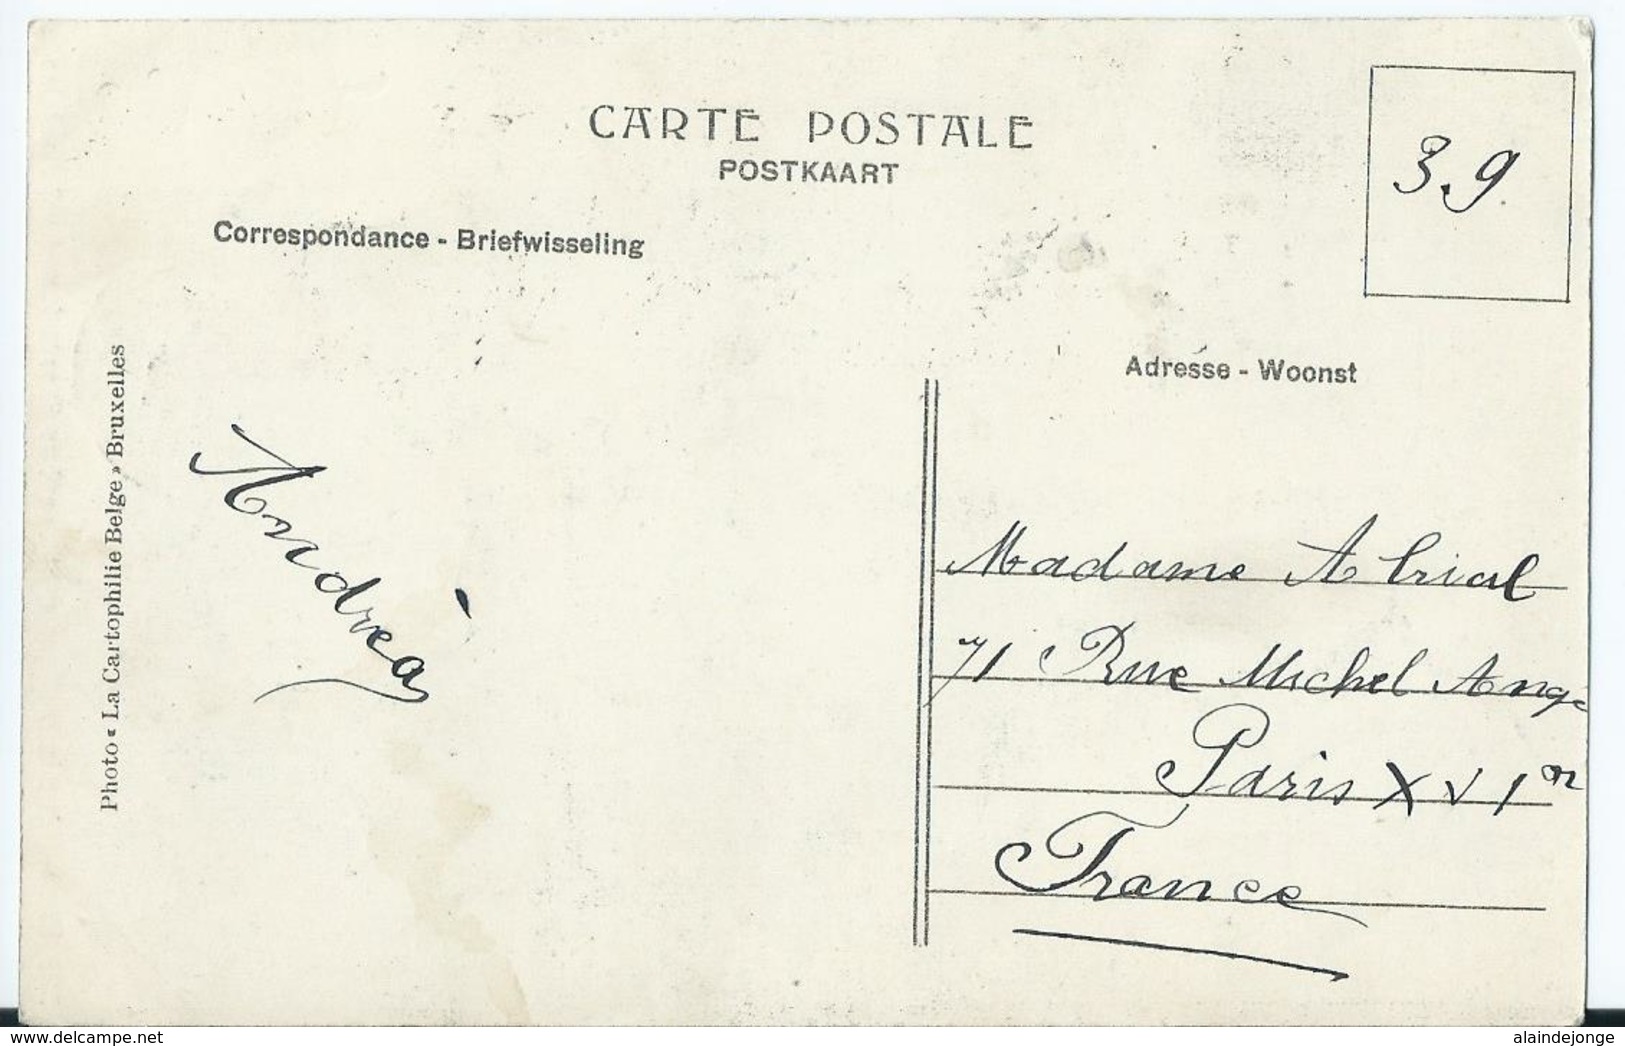 CARTE POSTALE
POSTKAART
3.9
Correspondance - Briefwisseling
Adresse - Woonst
Photo « La Cartophilie Belge » Bruxelles
Andréa
Madame Abrial
71 Rue Michel Ange
Paris XVI
France
www.delcampe.net
alaindejonge